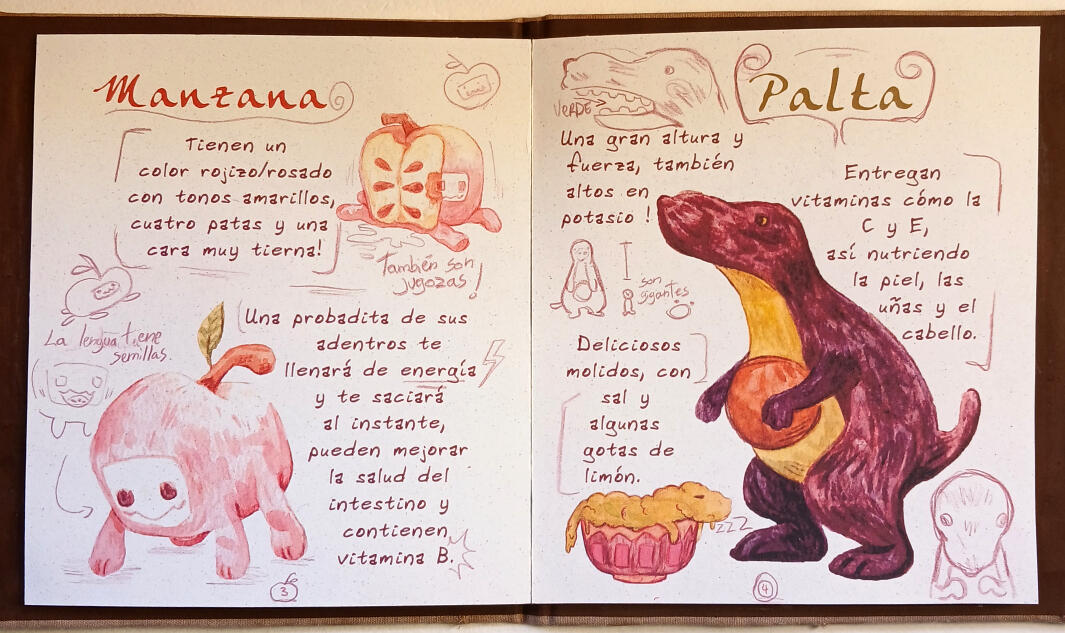 Manzana
Tienen un
color rojizo/rosado
con tonos amarillos,
cuatro patas y una
cara muy tierna!
También son
jugozas!
La lengua tiene
semillas.
Una probadita de sus
adentros te
llenará de energía
y te saciará
al instante,
pueden mejorar
la salud del
intestino y
contienen
vitamina B.
3
Palta
VERDE
Una gran altura y
fuerza, también
altos en
potasio !
son
gigantes
Entregan
vitaminas cómo la
C y E,
así nutriendo
la piel, las
uñas y el
cabello.
Deliciosos
molidos, con
sal y
algunas
gotas de
limón.
zzz
4